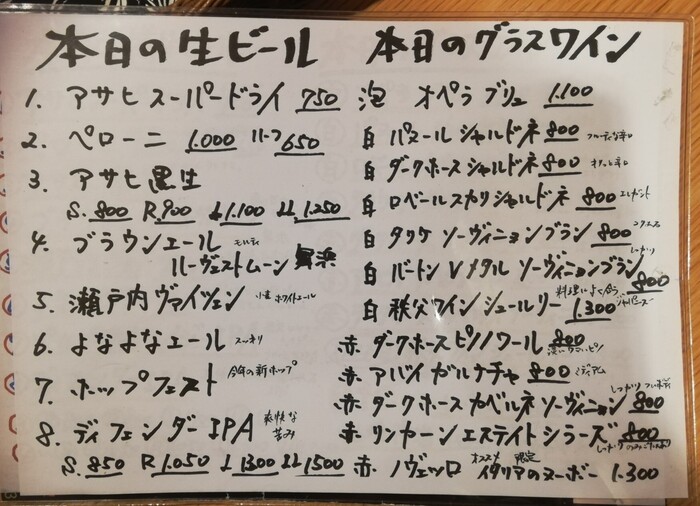 本日の生ビール
1. アサヒスーパードライ 750
2. ペローニ 1.000 ハーフ 650
3. アサヒ黒生
S.800 R.900 L1.100 LL1.250
4. ブラウンエール モルティ
ルーヴェストムーン 舞浜
5. 瀬戸内ヴァイツェン 小麦 ホワイトエール
6. よなよなエール スッキリ
7. ホップフェスト 今年の新ホップ
8. ディフェンダーIPA 爽快な
苦み
S.850 R1.050 L1300 LL1500
本日のグラスワイン
泡 オペラ ブリュ 1.100
白 パヌール シャルドネ 800 フルーティな辛口
白 ダークホース シャルドネ 800
白 ロベールスカリ シャルドネ 800 エレガント
白 タケ ソーヴィニョン ブラン 800
しっかり
白 バートン Vメタル ソーヴィニョンブラン 800
料理によく合う
白 秩父ワイン シュールリー 1.300 ジャパニーズ
赤 ダークホース ピノノワール 800
赤 アバイ ガルナチャ 800 ミディアム
しっかり フルボディ
赤 ダークホース カベルネ ソーヴィニョン 800
赤 リンカーン エステイト シラーズ 800
しっかり
オススメ 限定
赤 ノヴェッロ イタリアのヌーボー 1.300